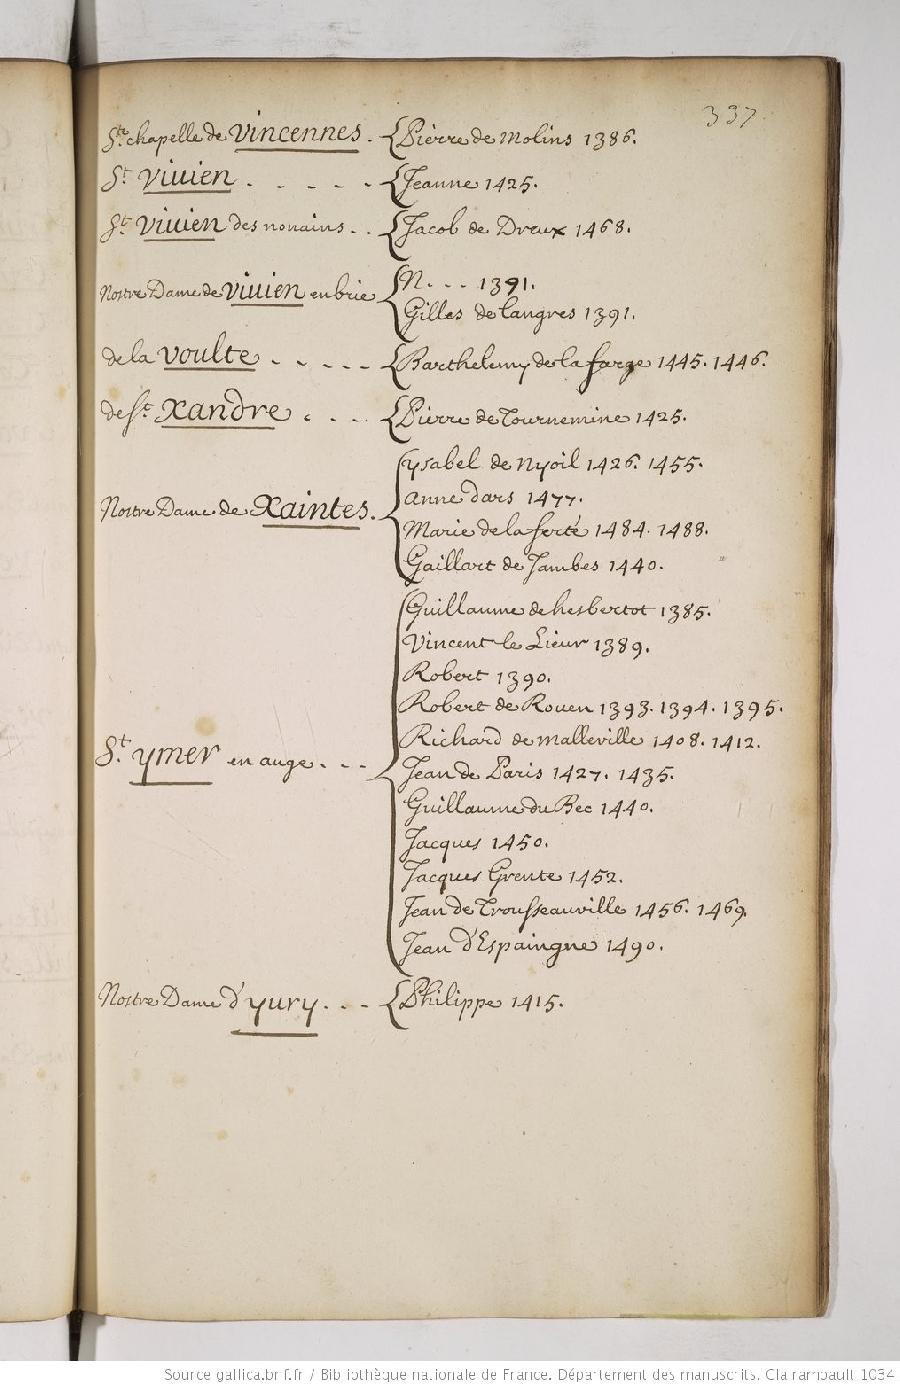 337.
Ste chapelle de Vincennes. Pierre de Molins 1386.
St Viuien . - - - - - Jeanne 1425.
St Viuien des nonains . . Jacob de Dreux 1468.
Nostre Dame de Viuien en brie N. . . . 1391.
Gilles de Langres 1391.
de la Voulte . - - - - Barthelemy de la farge 1445. 1446.
de St Xandre . - - - Pierre de Tournemine 1425.
ysabel de Nyoil 1426. 1455.
Anne d'ars 1477.
Nostre Dame de Xaintes.
Marie de la ferté 1484. 1488.
Gaillart de Jambes 1440.
Guillaume de hesbertot 1385.
Vincent le Lieur 1389.
Robert 1390.
Robert de Rouen 1393. 1394. 1395.
Richard de Malleville 1408. 1412.
St. ymer en auge . - - Jean de Paris 1427. 1435.
Guillaume du Bec 1440.
Jacques 1450.
Jacques Grente 1452.
Jean de Trousseauville 1456. 1469.
Jean d'Espaingne 1490.
Nostre Dame d'yury . . - - Philippe 1415.
Source gallica.bnf.fr / Bibliothèque nationale de France. Département des manuscrits. Clairambault 1034